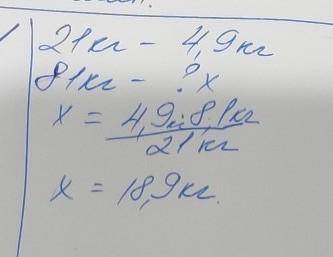 21кг – 4,9кг
81кг – ? x
x = 4,9кг·8,1кг
21кг
x = 18,9кг.